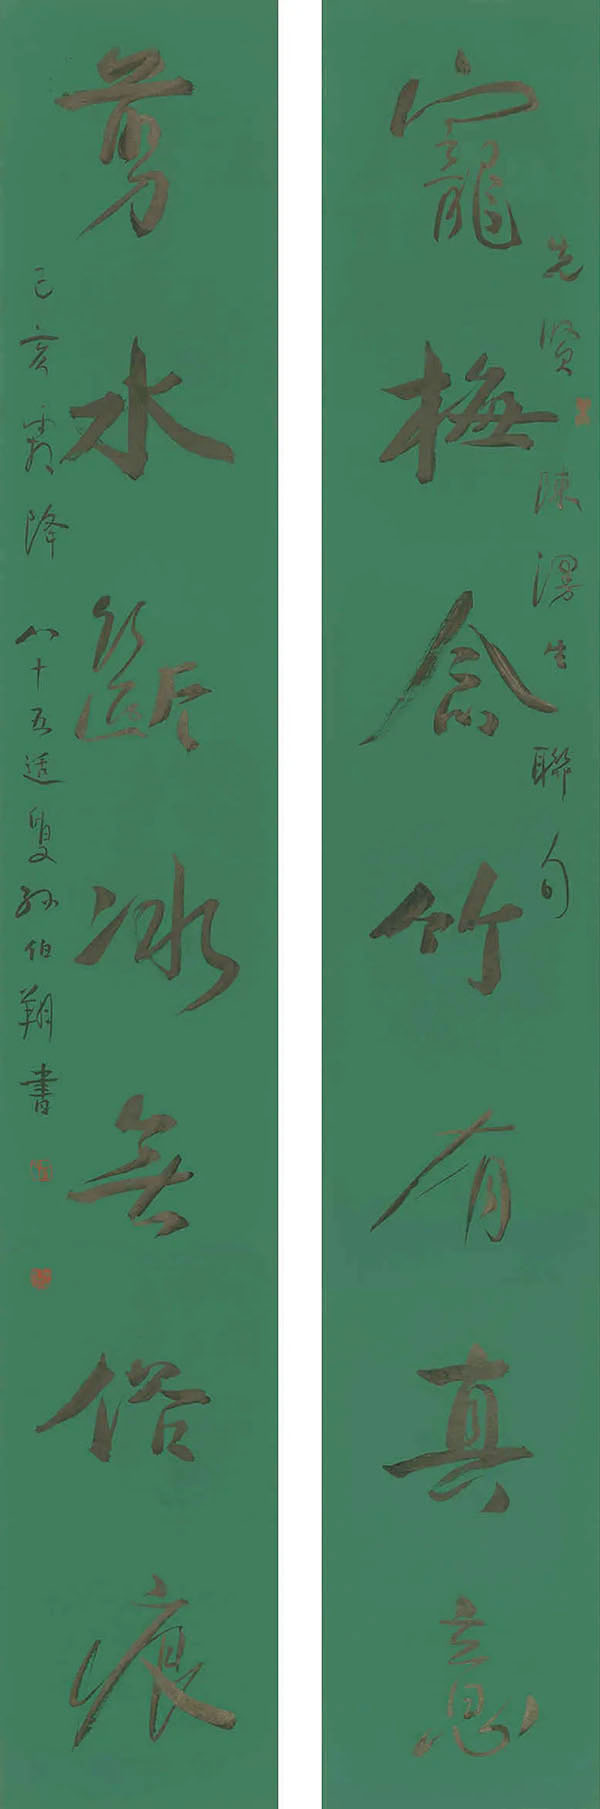 先贤陳澷生聯句
寵梅念竹有真意
剪水斷冰無俗痕
己亥霜降 八十五適叟孙伯翔書